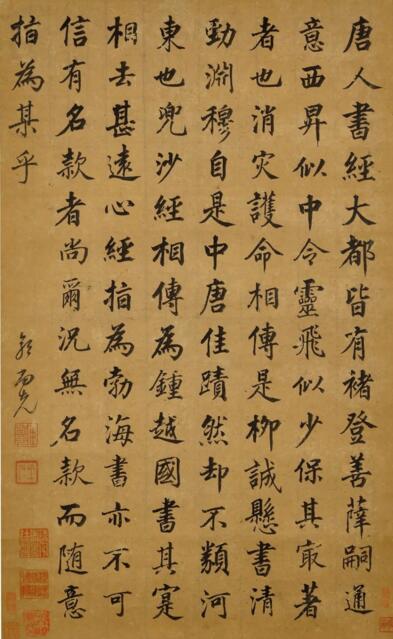 唐人書經大都皆有褚登善薛嗣通
意西昇似中令靈飛似少保其冣著
者也消灾護命相傳是柳誠懸書清
勁淵穆自是中唐佳蹟然却不類河
東也兜沙經相傳為鍾越國書其寔
相去甚遠心經指為勃海書亦不可
信有名款者尚爾況無名款而随意
指為某乎